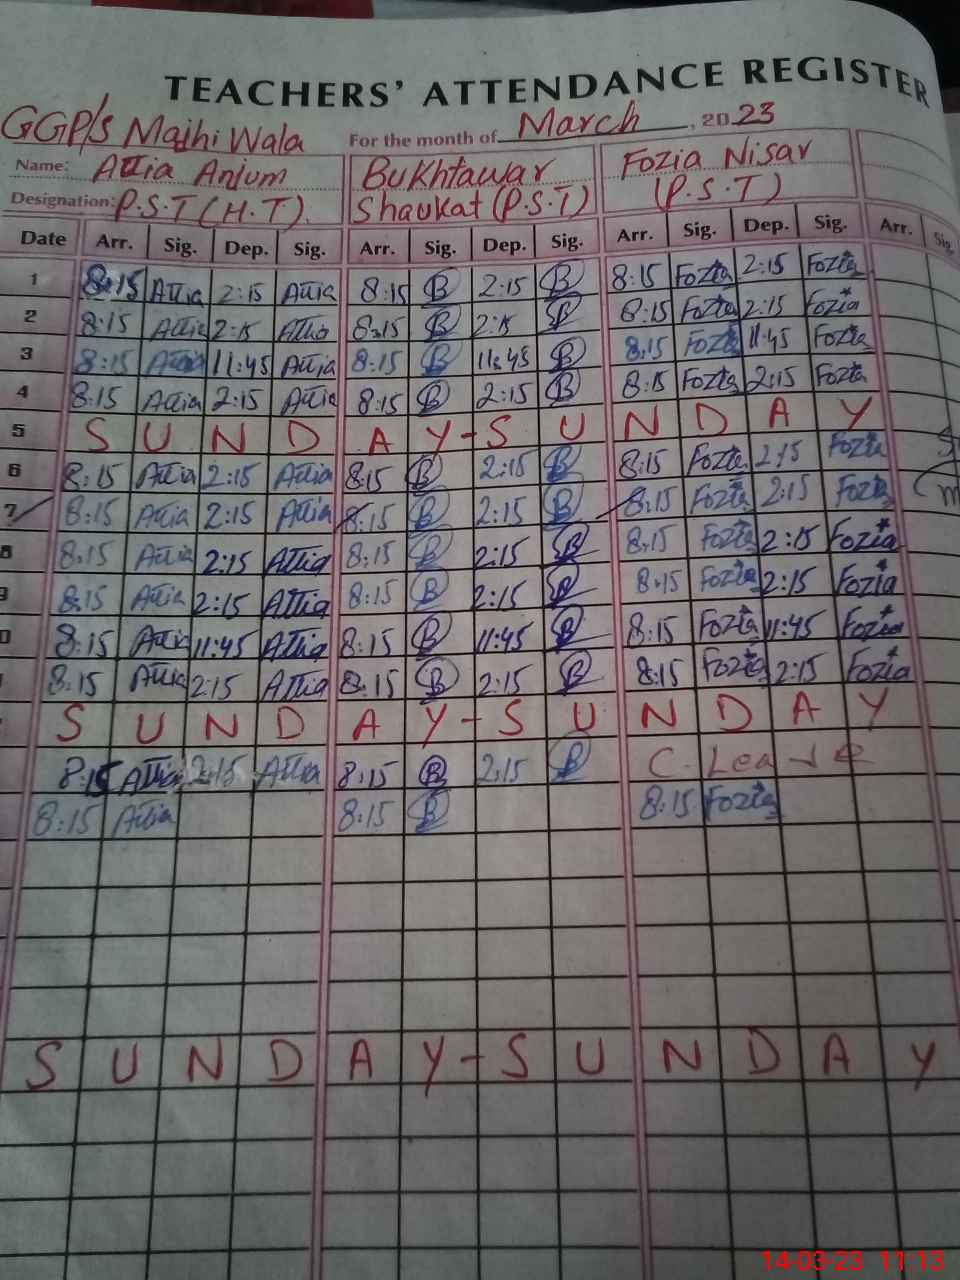 TEACHERS' ATTENDANCE REGISTER
GGP/S Majhi Wala For the month of March, 2023
Name: Attia Anjum Bukhtawar Fozia Nisar
Designation: P.S.T (H.T). Shaukat (P.S.T) (P.S.T)
Date Arr. Sig. Dep. Sig. Arr. Sig. Dep. Sig. Arr. Sig. Dep. Sig. Arr. Sig.
1 8:15 Attia 2:15 Attia 8:15 B 2:15 B 8:15 Fozia 2:15 Fozia
2 8:15 Attia 2:15 Attia 8:15 B 2:15 B 8:15 Fozia 2:15 Fozia
3 8:15 Attia 11:45 Attia 8:15 B 11:45 B 8:15 Fozia 11:45 Fozia
4 8:15 Attia 2:15 Attia 8:15 B 2:15 B 8:15 Fozia 2:15 Fozia
5 S U N D A Y - S U N D A Y
6 8:15 Attia 2:15 Attia 8:15 B 2:15 B 8:15 Fozia 2:15 Fozia
7 8:15 Attia 2:15 Attia 8:15 B 2:15 B 8:15 Fozia 2:15 Fozia
8 8:15 Attia 2:15 Attia 8:15 B 2:15 B 8:15 Fozia 2:15 Fozia
9 8:15 Attia 2:15 Attia 8:15 B 2:15 B 8:15 Fozia 2:15 Fozia
0 8:15 Attia 11:45 Attia 8:15 B 11:45 B 8:15 Fozia 11:45 Fozia
8:15 Attia 2:15 Attia 8:15 B 2:15 B 8:15 Fozia 2:15 Fozia
S U N D A Y - S U N D A Y
8:15 Attia 2:15 Attia 8:15 B 2:15 B C. Leave
8:15 Attia 8:15 B 8:15 Fozia
S U N D A Y - S U N D A Y
14-03-23 11:13